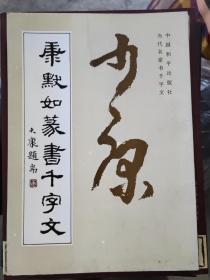 中國和平出版社
当代名家书千字文
康默如篆書千字文
大康題耑